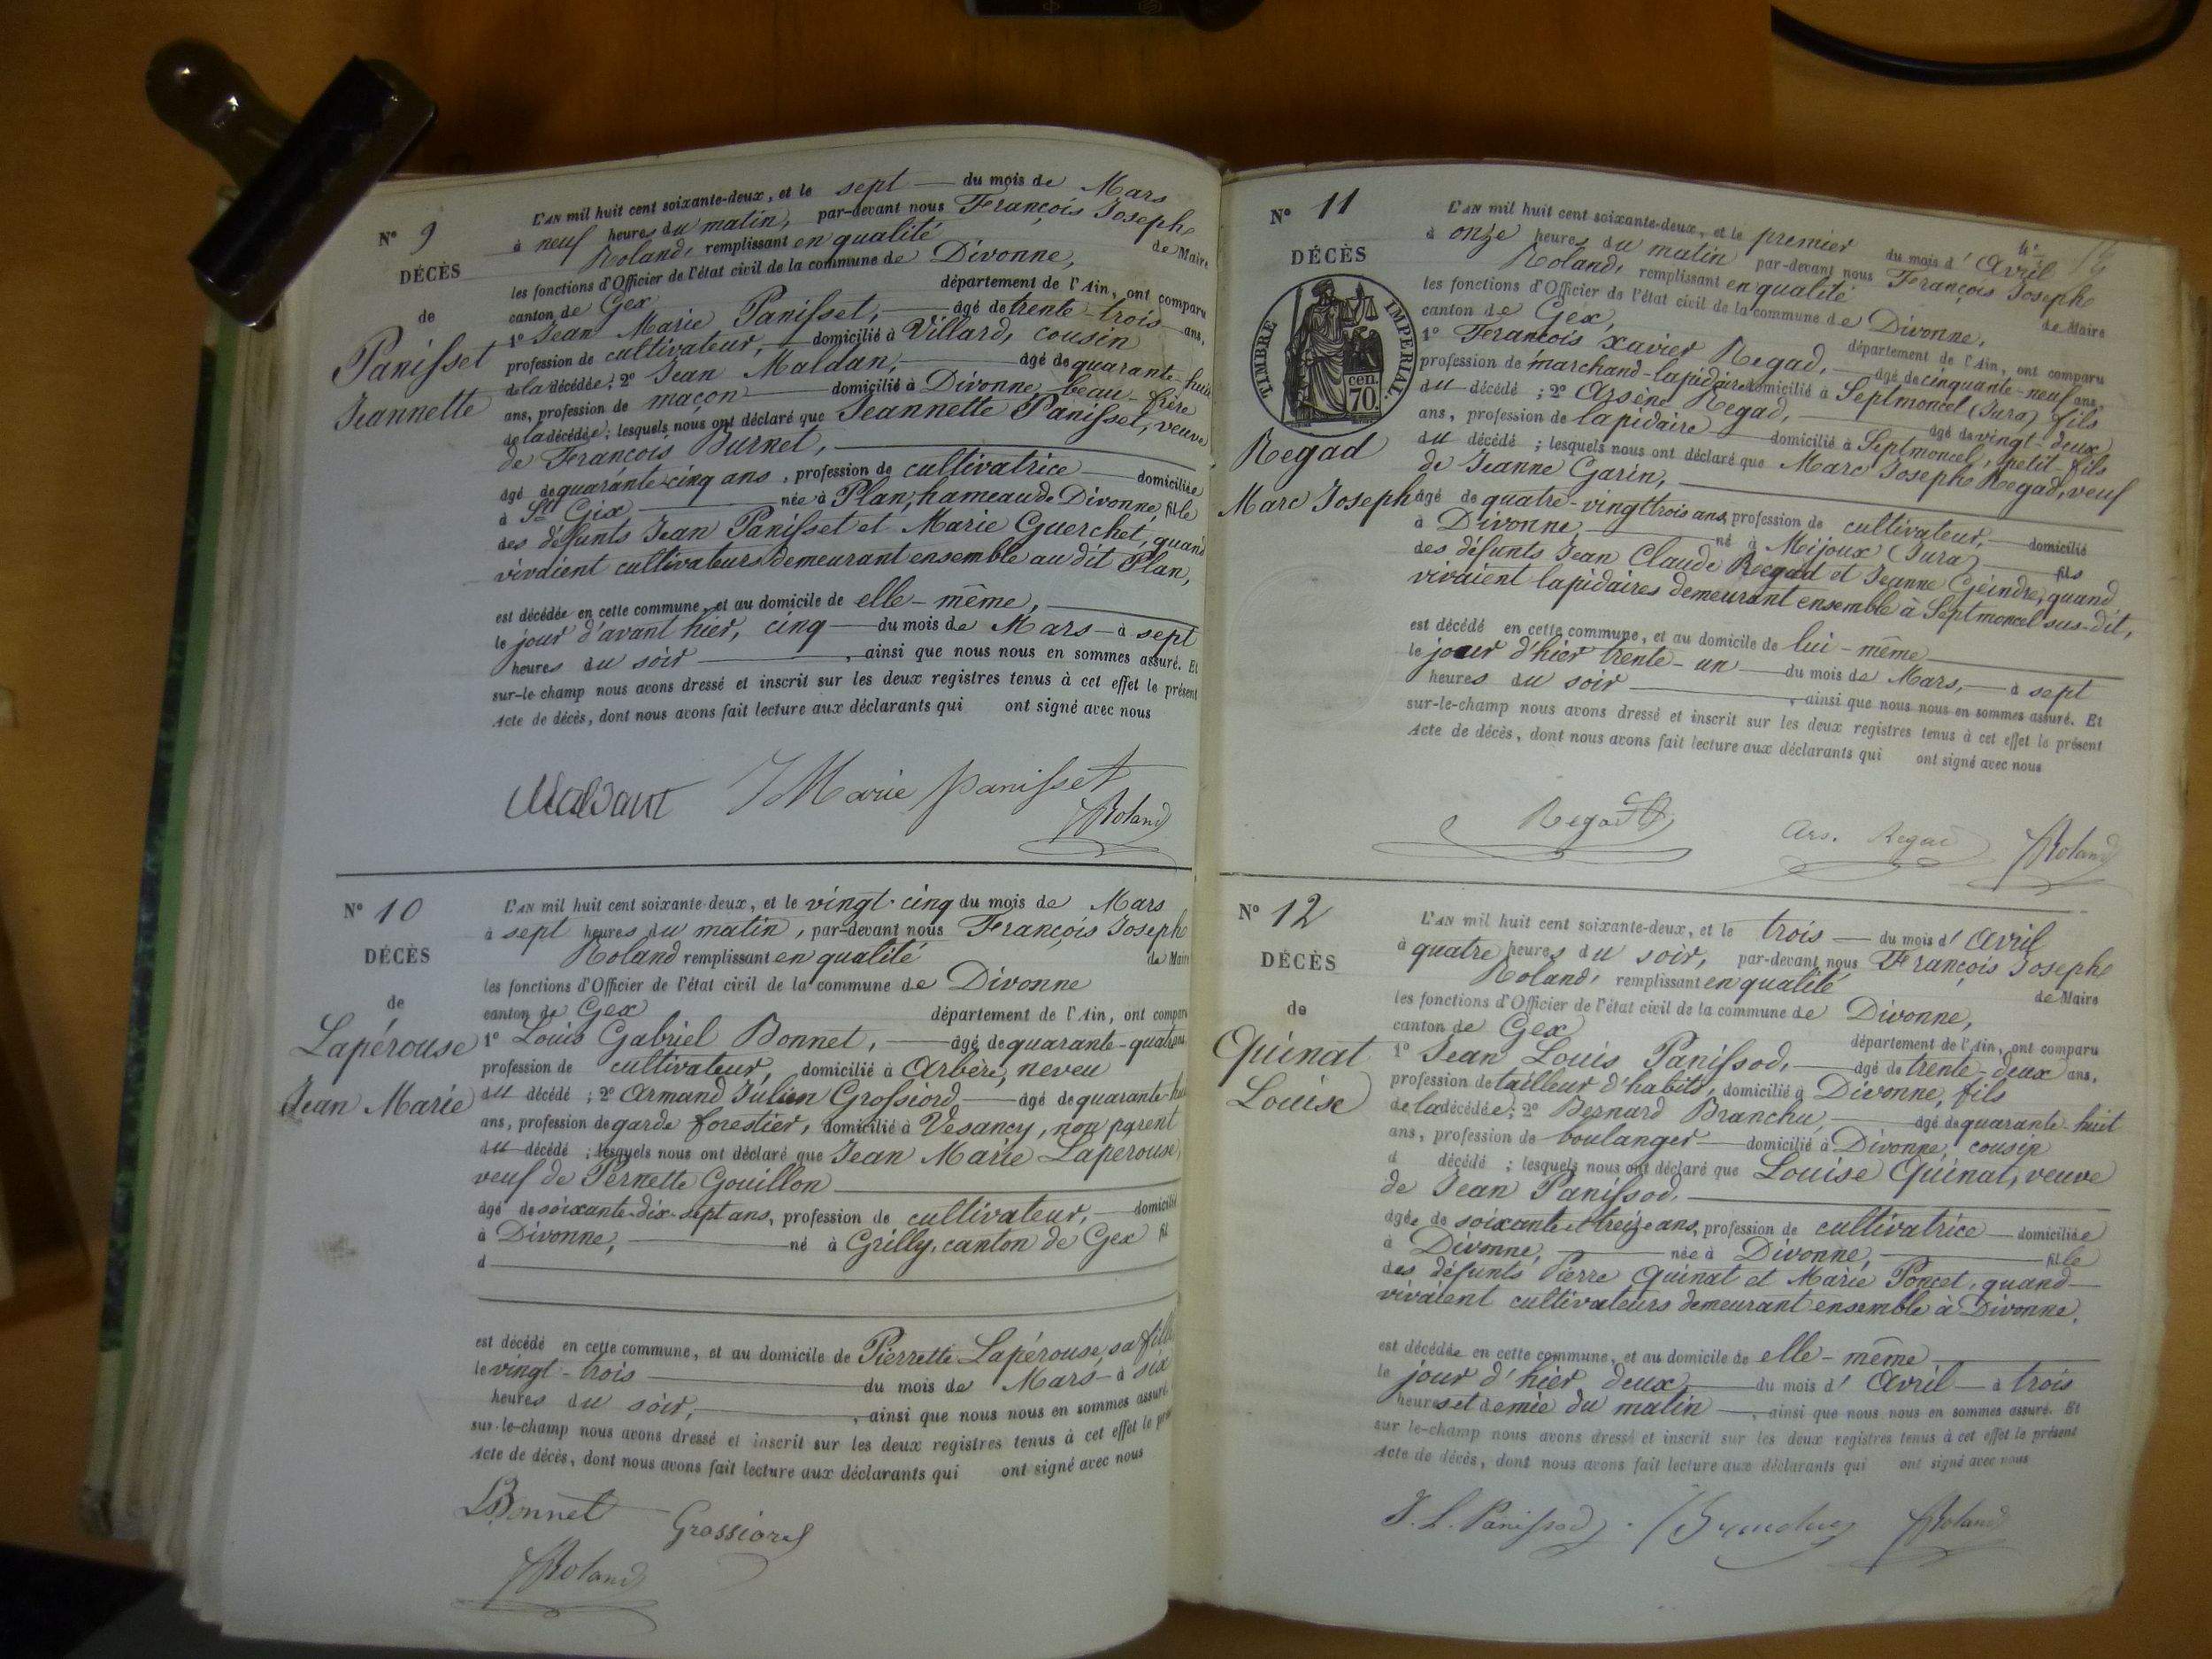 N° 9
DÉCÈS
de
Panisset
Jeannette
L'AN mil huit cent soixante-deux, et le sept du mois de Mars
à neuf heures du matin, par-devant nous François Joseph
Roland, remplissant en qualité de Maire
les fonctions d'Officier de l'état civil de la commune de Divonne,
canton de Gex département de l'Ain, ont comparu
1° Jean Marie Panisset, âgé de trente-trois ans,
profession de cultivateur, domicilié à Villard, cousin
de la décédée; 2° Jean Maldan, âgé de quarante-huit
ans, profession de maçon domicilié à Divonne, beau-frère
de la décédée; lesquels nous ont déclaré que Jeannette Panisset, veuve
de François Burnet,
âgé de quarante-cinq ans, profession de cultivatrice domiciliée
à St Gix née à Plan, hameau de Divonne, fille
des défunts Jean Panisset et Marie Guerchet, quand
vivaient cultivateurs demeurant ensemble au dit Plan,
est décédée en cette commune, et au domicile de elle-même,
le jour d'avant hier, cinq du mois de Mars à sept
heures du soir, ainsi que nous nous en sommes assuré. Et
sur-le-champ nous avons dressé et inscrit sur les deux registres tenus à cet effet le présent
Acte de décès, dont nous avons fait lecture aux déclarants qui ont signé avec nous
JMarie panisset
Roland
N° 10
DÉCÈS
de
Lapérouse
Jean Marie
L'AN mil huit cent soixante-deux, et le vingt-cinq du mois de Mars
à sept heures du matin, par-devant nous François Joseph
Roland remplissant en qualité de Maire
les fonctions d'Officier de l'état civil de la commune de Divonne
canton de Gex département de l'Ain, ont comparu
1° Louis Gabriel Bonnet, âgé de quarante-quatre ans
profession de cultivateur, domicilié à Arbère, neveu
du décédé; 2° Armand Julien Grossiord, âgé de quarante-huit
ans, profession de garde forestier, domicilié à Vesancy, non parent
du décédé; lesquels nous ont déclaré que Jean Marie Laperouse,
veuf de Pernette Gouillon
âgé de soixante-dix-sept ans, profession de cultivateur, domicilié
à Divonne, né à Grilly, canton de Gex fil
d
est décédé en cette commune, et au domicile de Pierrette Lapérouse, sa fille
le vingt-trois du mois de Mars à six
heures du soir, ainsi que nous nous en sommes assuré.
sur-le-champ nous avons dressé et inscrit sur les deux registres tenus à cet effet le présent
Acte de décès, dont nous avons fait lecture aux déclarants qui ont signé avec nous
LBonnet Grossiord
Roland
N° 11
DÉCÈS
TIMBRE IMPERIAL
cen. 70.
Regad
Marc Joseph
L'AN mil huit cent soixante-deux, et le premier du mois d'Avril
à onze heures du matin par-devant nous François Joseph
Roland, remplissant en qualité de Maire
les fonctions d'Officier de l'état civil de la commune de Divonne,
canton de Gex, département de l'Ain, ont comparu
1° François Xavier Regad, âgé de cinquante-neuf ans,
profession de marchand-lapidaire domicilié à Septmoncel (Jura) fils
du décédé; 2° Arsène Regad, âgé de vingt-deux
ans, profession de lapidaire domicilié à Septmoncel, petit-fils
du décédé; lesquels nous ont déclaré que Marc Joseph Regad, veuf
de Jeanne Garin,
âgé de quatre-vingt trois ans, profession de cultivateur, domicilié
à Divonne né à Mijoux (Jura) fils
des défunts Jean Claude Regad et Jeanne Geindre, quand
vivaient lapidaires demeurant ensemble à Septmoncel sus-dit,
est décédé en cette commune, et au domicile de lui-même
le jour d'hier trente-un du mois de Mars, à sept
heures du soir, ainsi que nous nous en sommes assuré. Et
sur-le-champ nous avons dressé et inscrit sur les deux registres tenus à cet effet le présent
Acte de décès, dont nous avons fait lecture aux déclarants qui ont signé avec nous
Regad Ars. Regad Roland
N° 12
DÉCÈS
de
Quinat
Louise
L'AN mil huit cent soixante-deux, et le trois du mois d'Avril
à quatre heures du soir, par-devant nous François Joseph
Roland, remplissant en qualité de Maire
les fonctions d'Officier de l'état civil de la commune de Divonne,
canton de Gex département de l'Ain, ont comparu
1° Jean Louis Panissod, âgé de trente-deux ans,
profession de tailleur d'habits, domicilié à Divonne, fils
de la décédée; 2° Bernard Branchu, âgé de quarante-huit
ans, profession de boulanger domicilié à Divonne, cousin
d décédé; lesquels nous ont déclaré que Louise Quinat, veuve
de Jean Panissod,
âgée de soixante et treize ans, profession de cultivatrice domiciliée
à Divonne, née à Divonne, fille
des défunts Pierre Quinat et Marie Poncet, quand
vivaient cultivateurs demeurant ensemble à Divonne,
est décédée en cette commune, et au domicile de elle-même
le jour d'hier deux du mois d'Avril à trois
heures et demie du matin, ainsi que nous nous en sommes assuré. Et
sur le-champ nous avons dressé et inscrit sur les deux registres tenus à cet effet le présent
Acte de décès, dont nous avons fait lecture aux déclarants qui ont signé avec nous
J. L. Panissod Branchu Roland